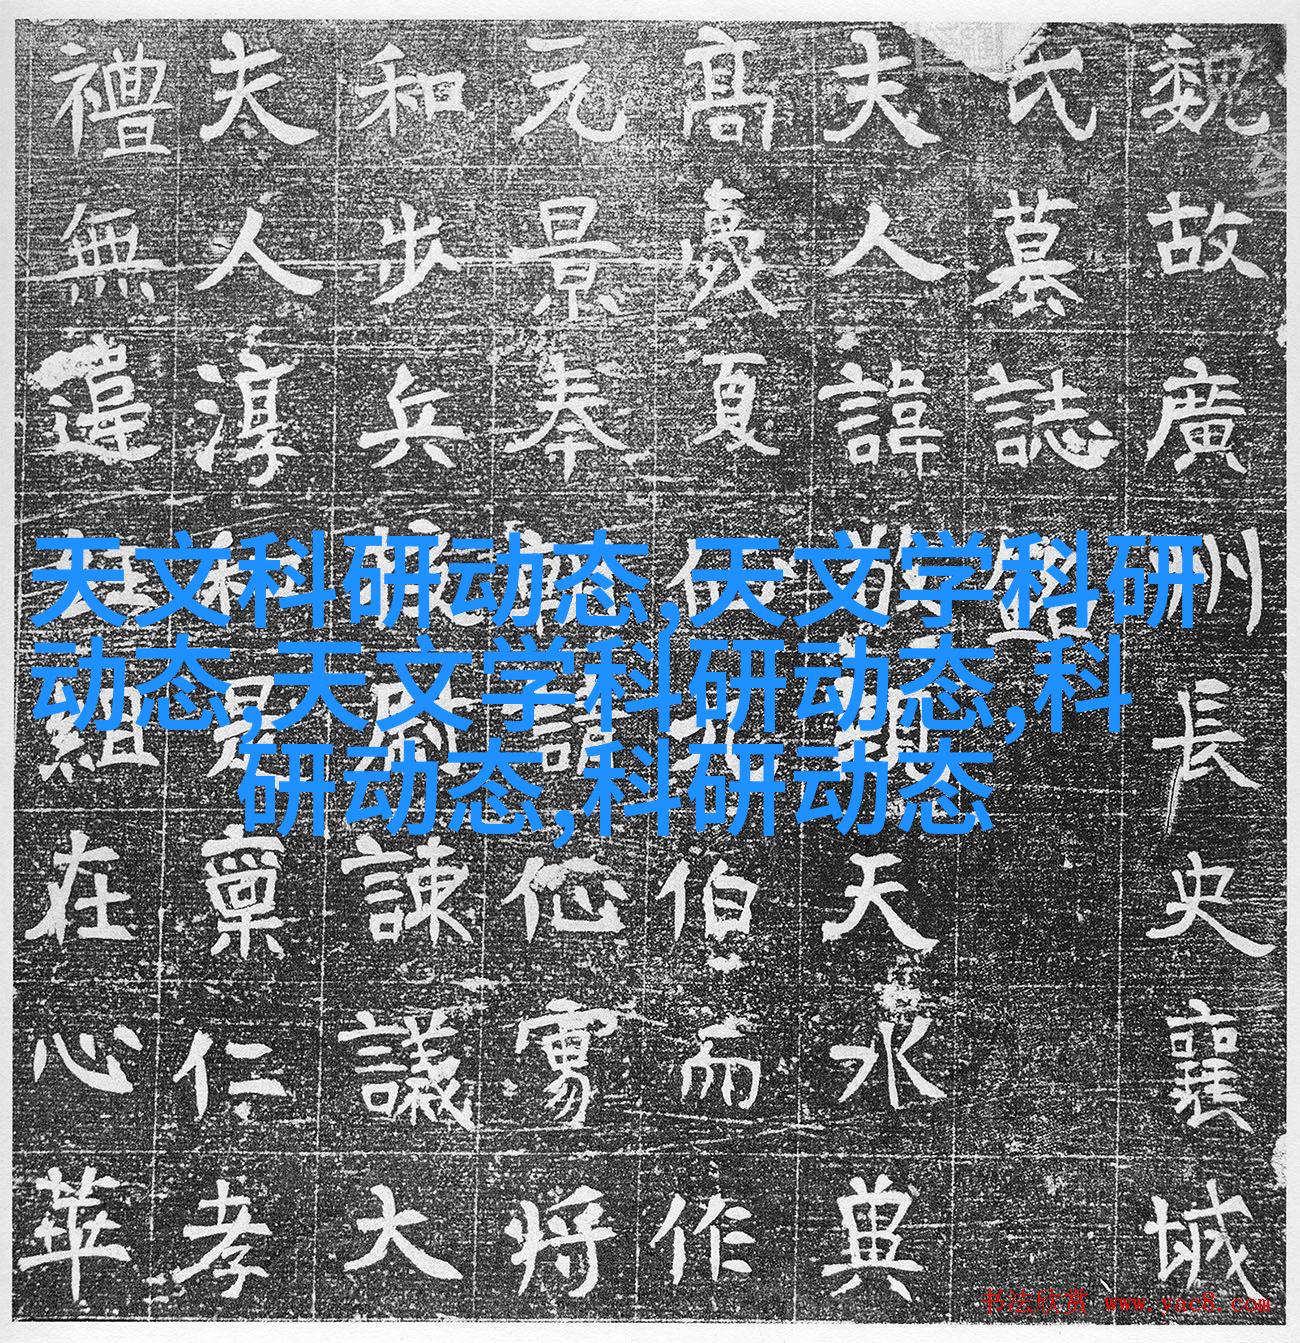 魏故廣州長史襄城
氏墓誌銘
夫人諱天水
高夏伯而作
元景奉諱将
和步兵校尉諫議大
夫人淳和是稟仁孝
禮無違組在心華
天文科研动态,天文学科研
动态,天文学科研动态,科
研动态,科研动态
书法欣赏 www.yac8.com